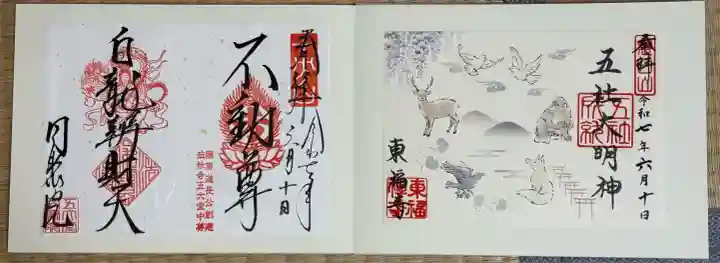 奉拝
令和七年六月十日
五社大明神
東福寺
東福寺印
奉拝
令和七年六月十日
不動尊
藤原道長公創建
法性寺五大堂中尊
白龍辨財天
同聚院